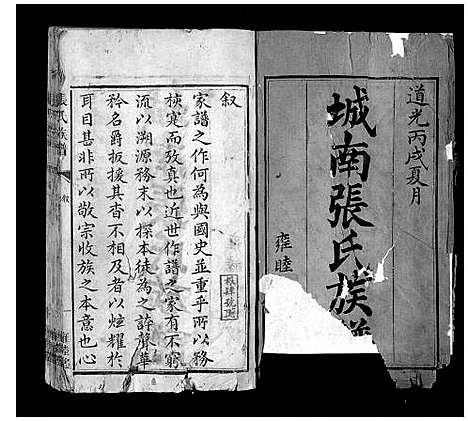 道光丙戌夏月
城南張氏族譜
雍睦
叙
家譜之作何為與國史並重乎所以務
核寔而攷真也近世作譜之家有不窮
流以溯源務末以探本徒為之詳聲華
矜名爵扳援其杳不相及者以炫耀於
耳目甚非所以敬宗收族之本意也心
張氏族譜
叙